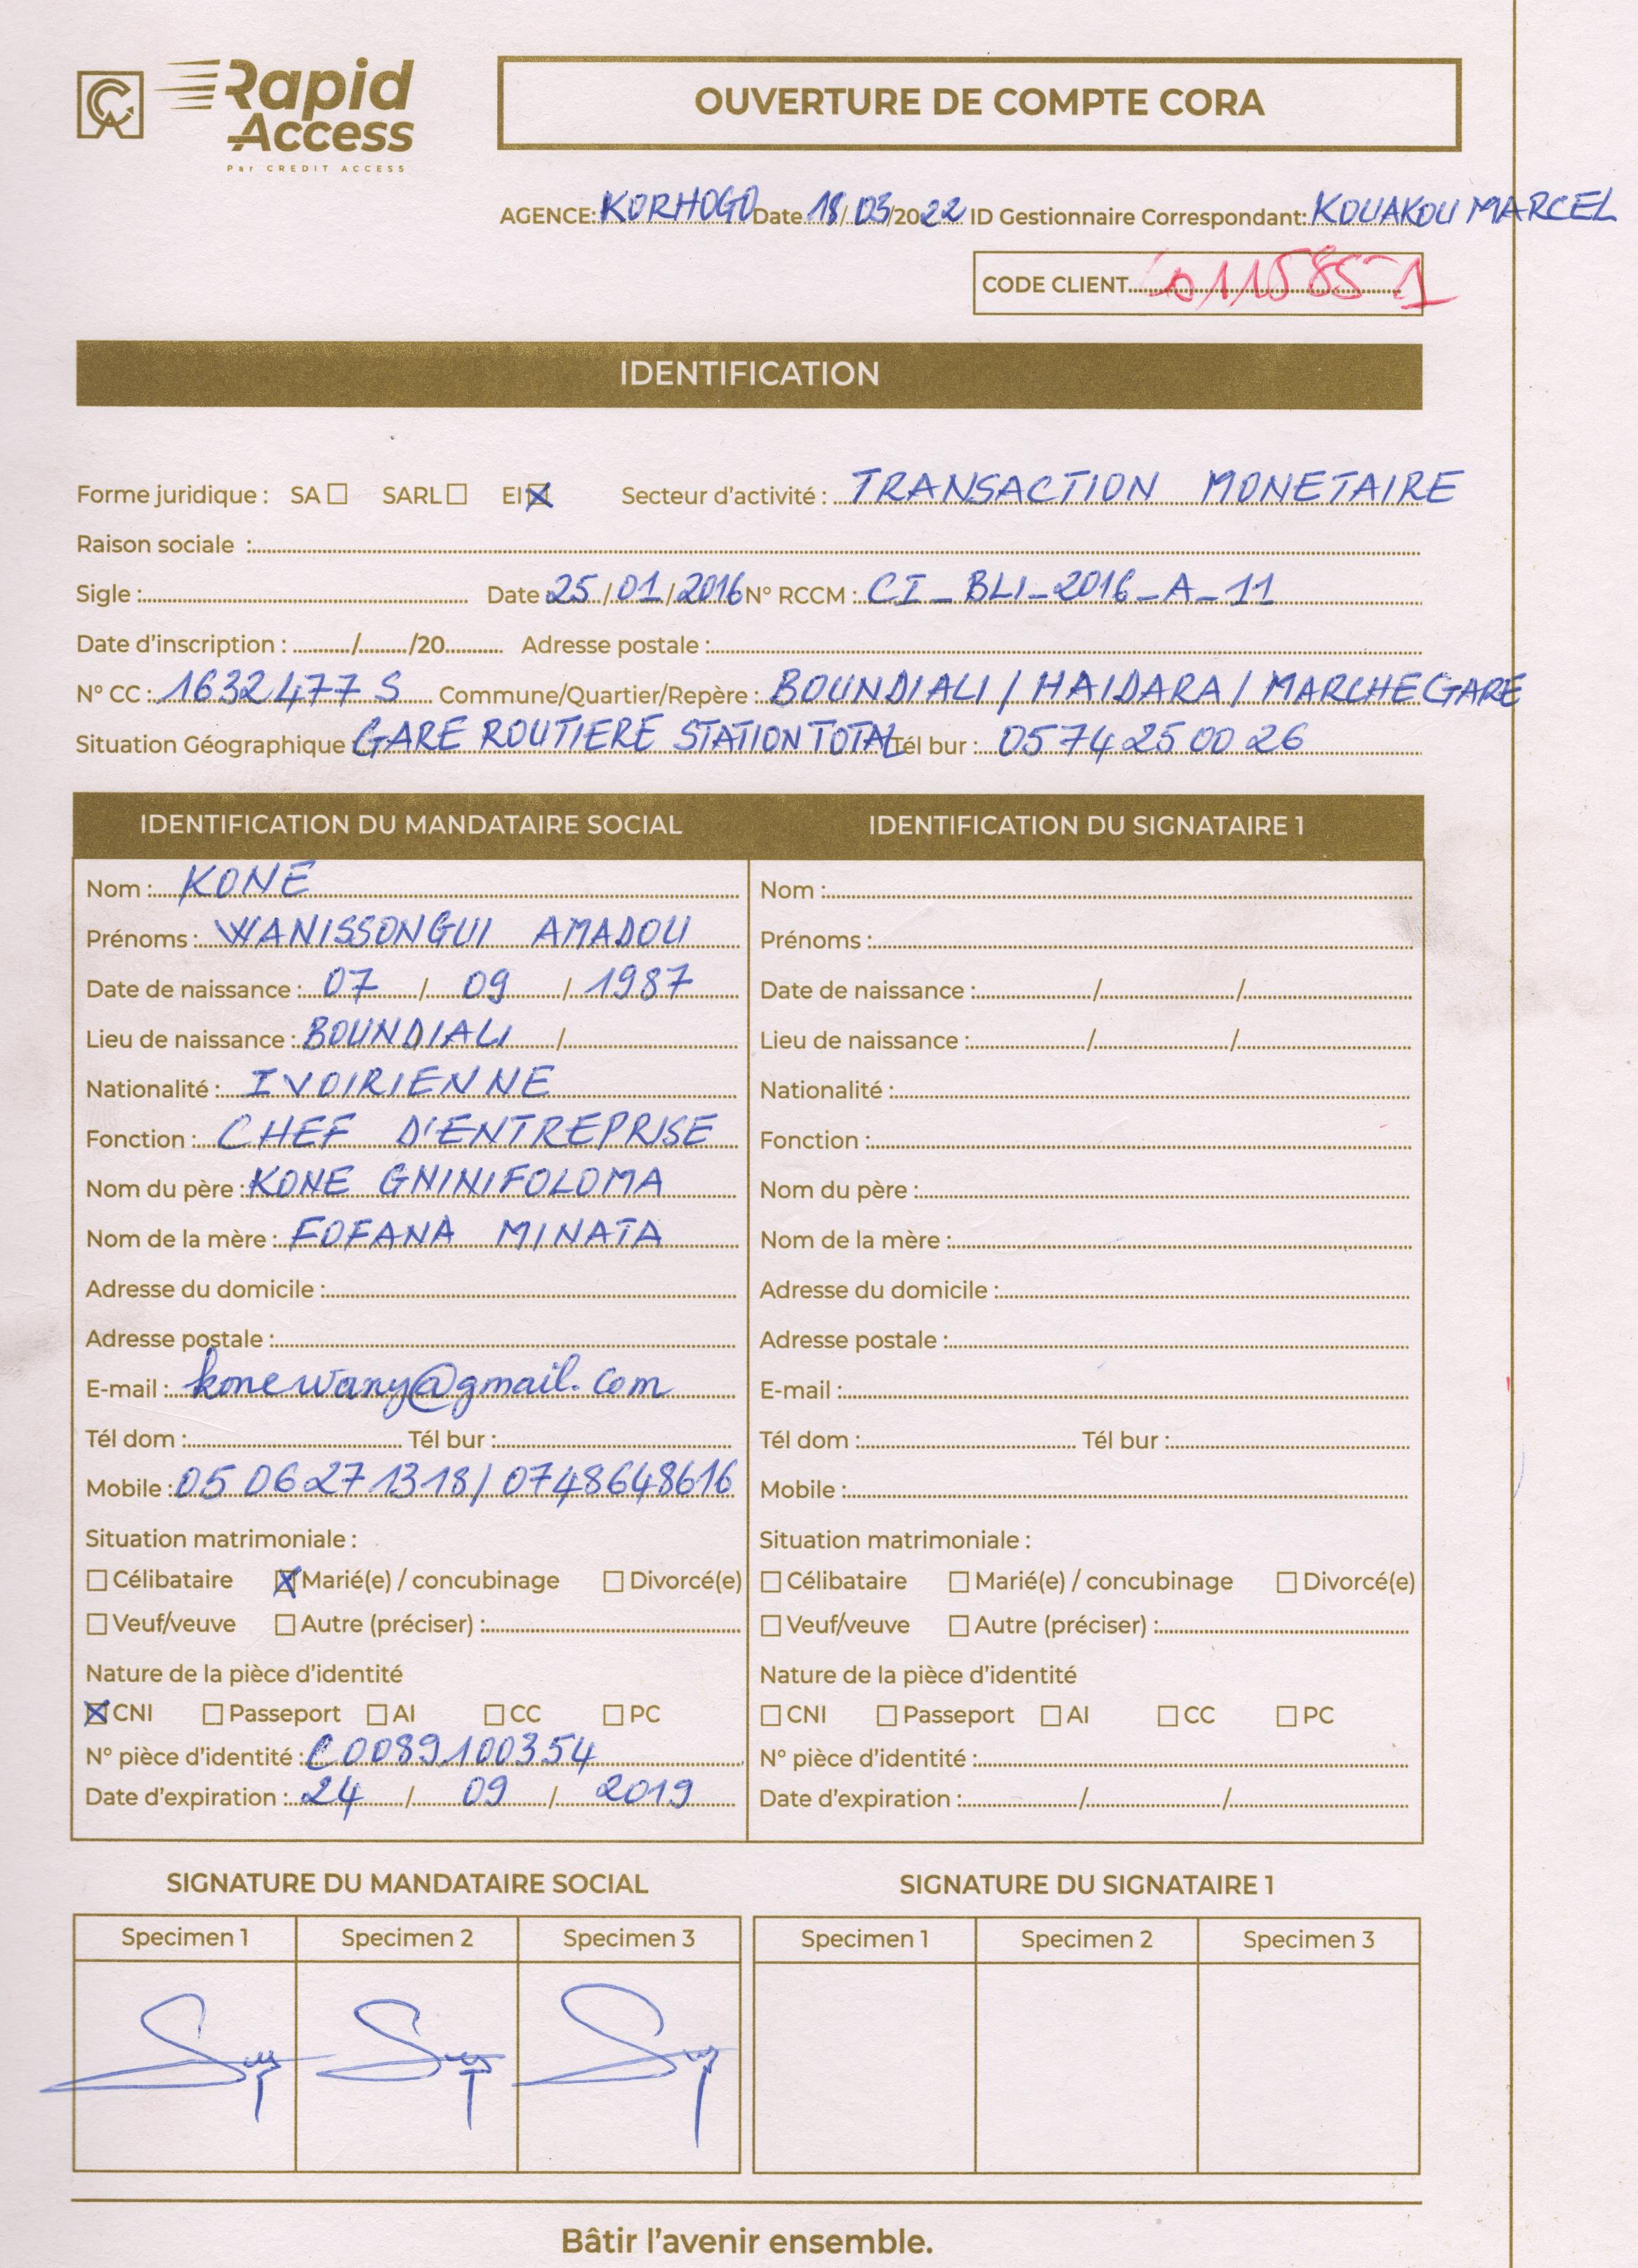 Rapid Access
Par CREDIT ACCESS
OUVERTURE DE COMPTE CORA
AGENCE: KORHOGO Date 18/03/2022 ID Gestionnaire Correspondant: KOUAKOU MARCEL
CODE CLIENT
IDENTIFICATION
Forme juridique : SA ☐ SARL ☐ EI ☒ Secteur d'activité : TRANSACTION MONETAIRE
Raison sociale :
Sigle : Date 25/01/2016 N° RCCM : CI_BLI_2016_A_11
Date d'inscription : / /20 Adresse postale :
N° CC : 1632477 S Commune/Quartier/Repère : BOUNDIALI / HAIDARA / MARCHE GARE
Situation Géographique GARE ROUTIERE STATION TOTAL Tél bur : 05 74 25 00 26
IDENTIFICATION DU MANDATAIRE SOCIAL
Nom : KONE
Prénoms : WANISSONGUI AMADOU
Date de naissance : 07 / 09 / 1987
Lieu de naissance : BOUNDIALI /
Nationalité : IVOIRIENNE
Fonction : CHEF D'ENTREPRISE
Nom du père : KONE GNINIFOLOMA
Nom de la mère : FOFANA MINATA
Adresse du domicile :
Adresse postale :
E-mail : konewany@gmail.com
Tél dom : Tél bur :
Mobile : 05 06 27 13 18 / 0748648616
Situation matrimoniale :
☐ Célibataire ☒ Marié(e) / concubinage ☐ Divorcé(e)
☐ Veuf/veuve ☐ Autre (préciser) :
Nature de la pièce d'identité
☒ CNI ☐ Passeport ☐ AI ☐ CC ☐ PC
N° pièce d'identité : C0089100354
Date d'expiration : 24 / 09 / 2019
IDENTIFICATION DU SIGNATAIRE 1
Nom :
Prénoms :
Date de naissance : / /
Lieu de naissance : / /
Nationalité :
Fonction :
Nom du père :
Nom de la mère :
Adresse du domicile :
Adresse postale :
E-mail :
Tél dom : Tél bur :
Mobile :
Situation matrimoniale :
☐ Célibataire ☐ Marié(e) / concubinage ☐ Divorcé(e)
☐ Veuf/veuve ☐ Autre (préciser) :
Nature de la pièce d'identité
☐ CNI ☐ Passeport ☐ AI ☐ CC ☐ PC
N° pièce d'identité :
Date d'expiration : / /
SIGNATURE DU MANDATAIRE SOCIAL
Specimen 1 Specimen 2 Specimen 3
SIGNATURE DU SIGNATAIRE 1
Specimen 1 Specimen 2 Specimen 3
Bâtir l'avenir ensemble.